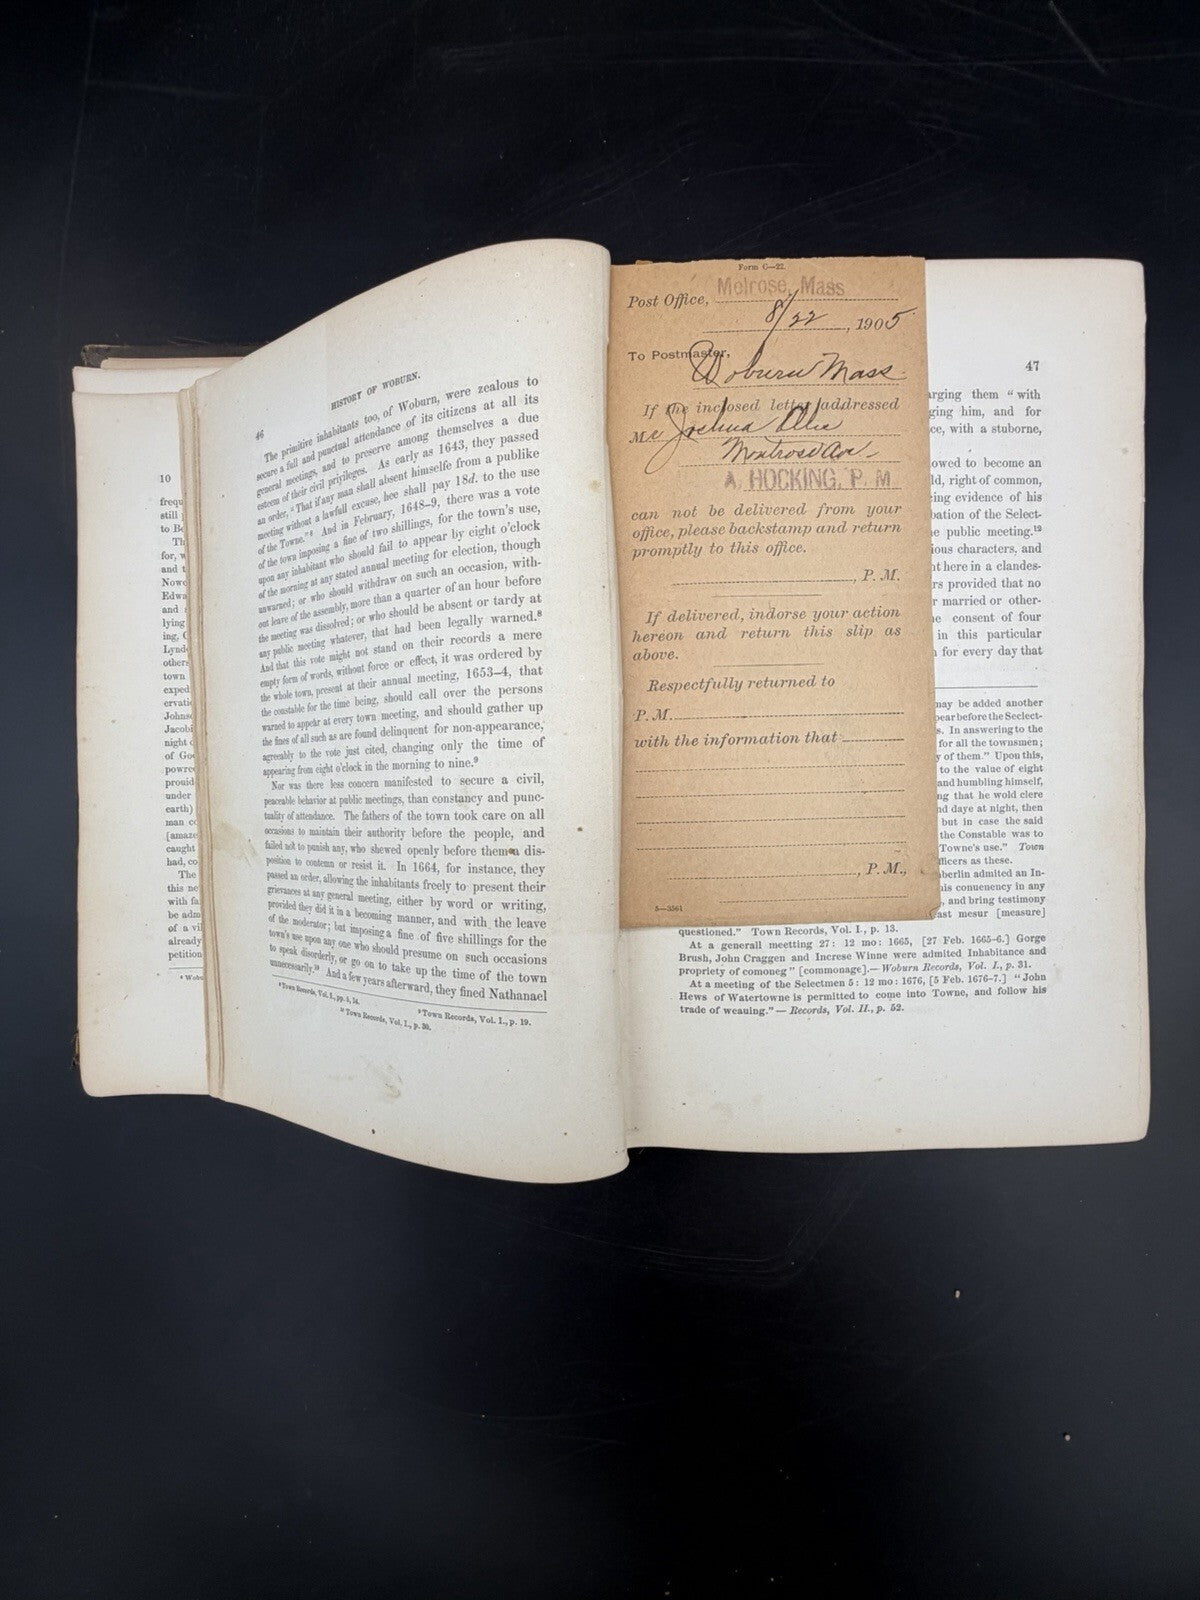 10
frequ
still
to Be
Th
for, w
and t
Nowe
Edwa
and
lying
ing, C
Lynde
others
town
exped
ervati
Johns
Jacobi
night
of Go
powre
prouid
under
earth)
man co
[amaze
caught
had, co
The
this ne
with fa
be adm
of a vi
already
petition
46
HISTORY OF WOBURN.
The primitive inhabitants too, of Woburn, were zealous to
secure a full and punctual attendance of its citizens at all its
general meetings, and to preserve among themselves a due
esteem of their civil privileges. As early as 1643, they passed
an order, "That if any man shall absent himselfe from a publike
meeting without a lawfull excuse, hee shall pay 18d. to the use
of the Towne."8 And in February, 1648-9, there was a vote
of the town imposing a fine of two shillings, for the town's use,
upon any inhabitant who should fail to appear by eight o'clock
of the morning at any stated annual meeting for election, though
unwarned; or who should withdraw on such an occasion, with-
out leave of the assembly, more than a quarter of an hour before
the meeting was dissolved; or who should be absent or tardy at
any public meeting whatever, that had been legally warned.8
And that this vote might not stand on their records a mere
empty form of words, without force or effect, it was ordered by
the whole town, present at their annual meeting, 1653-4, that
the constable for the time being, should call over the persons
warned to appear at every town meeting, and should gather up
the fines of all such as are found delinquent for non-appearance,
agreeably to the vote just cited, changing only the time of
appearing from eight o'clock in the morning to nine.9
Nor was there less concern manifested to secure a civil,
peaceable behavior at public meetings, than constancy and punc-
tuality of attendance. The fathers of the town took care on all
occasions to maintain their authority before the people, and
failed not to punish any, who shewed openly before them a dis-
position to contemn or resist it. In 1664, for instance, they
passed an order, allowing the inhabitants freely to present their
grievances at any general meeting, either by word or writing,
provided they did it in a becoming manner, and with the leave
of the moderator; but imposing a fine of five shillings for the
town's use upon any one who should presume on such occasions
to speak disorderly, or go on to take up the time of the town
unnecessarily.10 And a few years afterward, they fined Nathanael
8 Town Records, Vol. I., pp. 5, 14.
9 Town Records, Vol. I., p. 19.
10 Town Records, Vol. I., p. 30.
Form C—22.
Post Office, Melrose, Mass
8/22, 1905
To Postmaster,
Woburn Mass.
If the inclosed letter addressed
Mr Joshua
Montrose Ave
A. HOCKING, P. M.
can not be delivered from your
office, please backstamp and return
promptly to this office.
, P. M.
If delivered, indorse your action
hereon and return this slip as
above.
Respectfully returned to
P. M.
with the information that
, P. M.,
5—3561
47
arging them "with
ging him, and for
ce, with a stuborne,
owed to become an
ld, right of common,
ing evidence of his
bation of the Select-
e public meeting.19
ious characters, and
nt here in a clandes-
rs provided that no
r married or other-
ne consent of four
in this particular
for every day that
may be added another
pear before the Seclect-
s. In answering to the
for all the townsmen;
y of them." Upon this,
to the value of eight
and humbling himself,
ng that he wold clere
nd daye at night, then
but in case the said
the Constable was to
Towne's use." Town
fficers as these.
mberlin admited an In-
his conuenency in any
, and bring testimony
ast mesur [measure]
questioned." Town Records, Vol. I., p. 13.
At a generall meetting 27: 12 mo: 1665, [27 Feb. 1665-6.] Gorge
Brush, John Craggen and Increse Winne were admited Inhabitance and
propriety of comoneg" [commonage].—Woburn Records, Vol. I., p. 31.
At a meeting of the Selectmen 5: 12 mo: 1676, [5 Feb. 1676-7.] "John
Hews of Watertowne is permitted to come into Towne, and follow his
trade of weauing."—Records, Vol. II., p. 52.